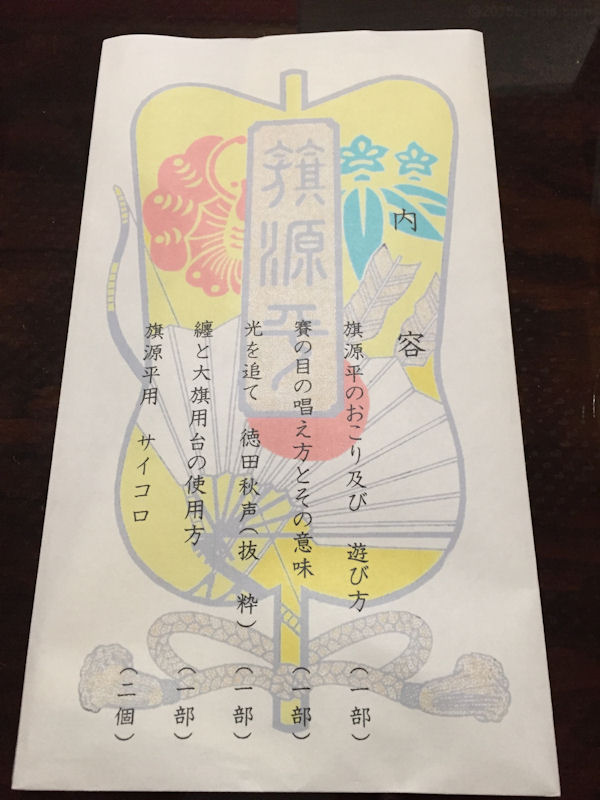 籏源平
内容
旗源平のおこり及び 遊び方 (一部)
賽の目の唱え方とその意味 (一部)
光を追て 徳田秋声(抜粋) (一部)
纏と大旗用台の使用方 (一部)
旗源平用 サイコロ (二個)